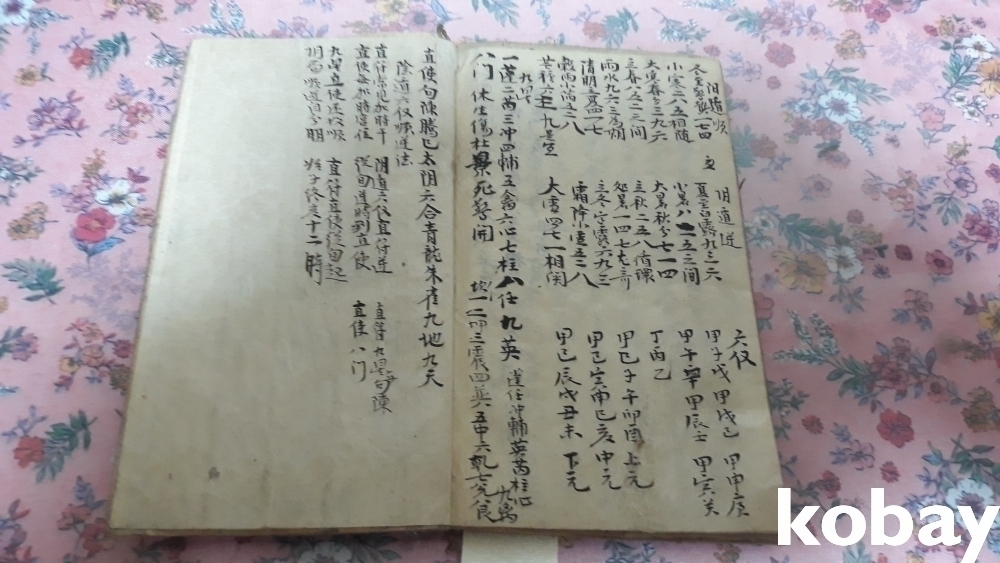 阳遁顺
冬至驚蟄一七四
小寒二八五相随
大寒春分三九六
立春八五二之间
雨水九六三为期
清明立夏四一七
穀雨小满五二八
芒種六三九是
阴遁逆
夏至白露九三六
小暑八二五之间
大暑秋分七一四
立秋二五八循環
処暑一四七无奇
立冬寒露六九三
霜降小雪五二八
大雪四七一相関
六仪
甲子戊 甲戌己 甲申庚
甲午辛 甲辰壬 甲寅癸
丁丙乙
甲己子午卯酉 上元
甲己寅申巳亥 中元
甲己辰戌丑未 下元
九星
一蓬二芮三冲四輔五禽六心七柱八任九英 蓬任冲輔英芮柱心
八门 休生傷杜景死驚開 坎一二坤三震四巽五中六乾七兌八艮
九离
直使勾陳騰巳太阴六合青龍朱雀九地九天
陰遁六仪順逆法
直符常從加時干 阴遁六仪直符逆 直符九星勾陳
直使每加時遁位 從旬逆時到直使 直使八门
九星直使还以順 直符直使從旬起
kobay